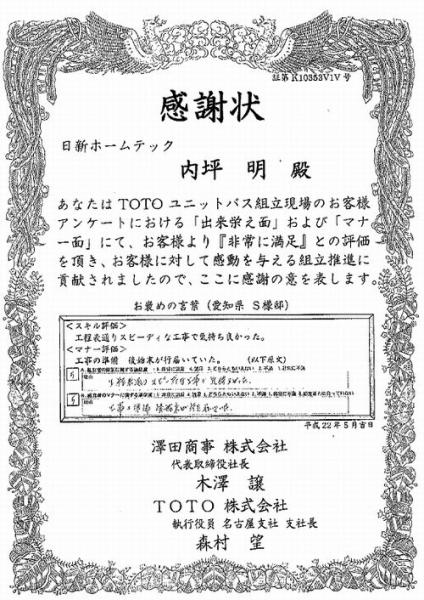 証第K10353V1V号
感謝状
日新ホームテック
内坪 明 殿
あなたは TOTO ユニットバス組立現場のお客様
アンケートにおける「出来栄え面」および「マナ
ー面」にて、お客様より『非常に満足』との評価
を頂き、お客様に対して感動を与える組立推進に
貢献されましたので、ここに感謝の意を表します。
お褒めの言葉（愛知県 S様邸）
＜スキル評価＞
工程表通りスピーディな工事で気持ち良かった。
＜マナー評価＞
工事の準備 後始末が行届いていた。 （以下原文）
5
5
平成22年5月吉日
澤田商事 株式会社
代表取締役社長
木澤 譲
TOTO 株式会社
執行役員 名古屋支社 支社長
森村 望